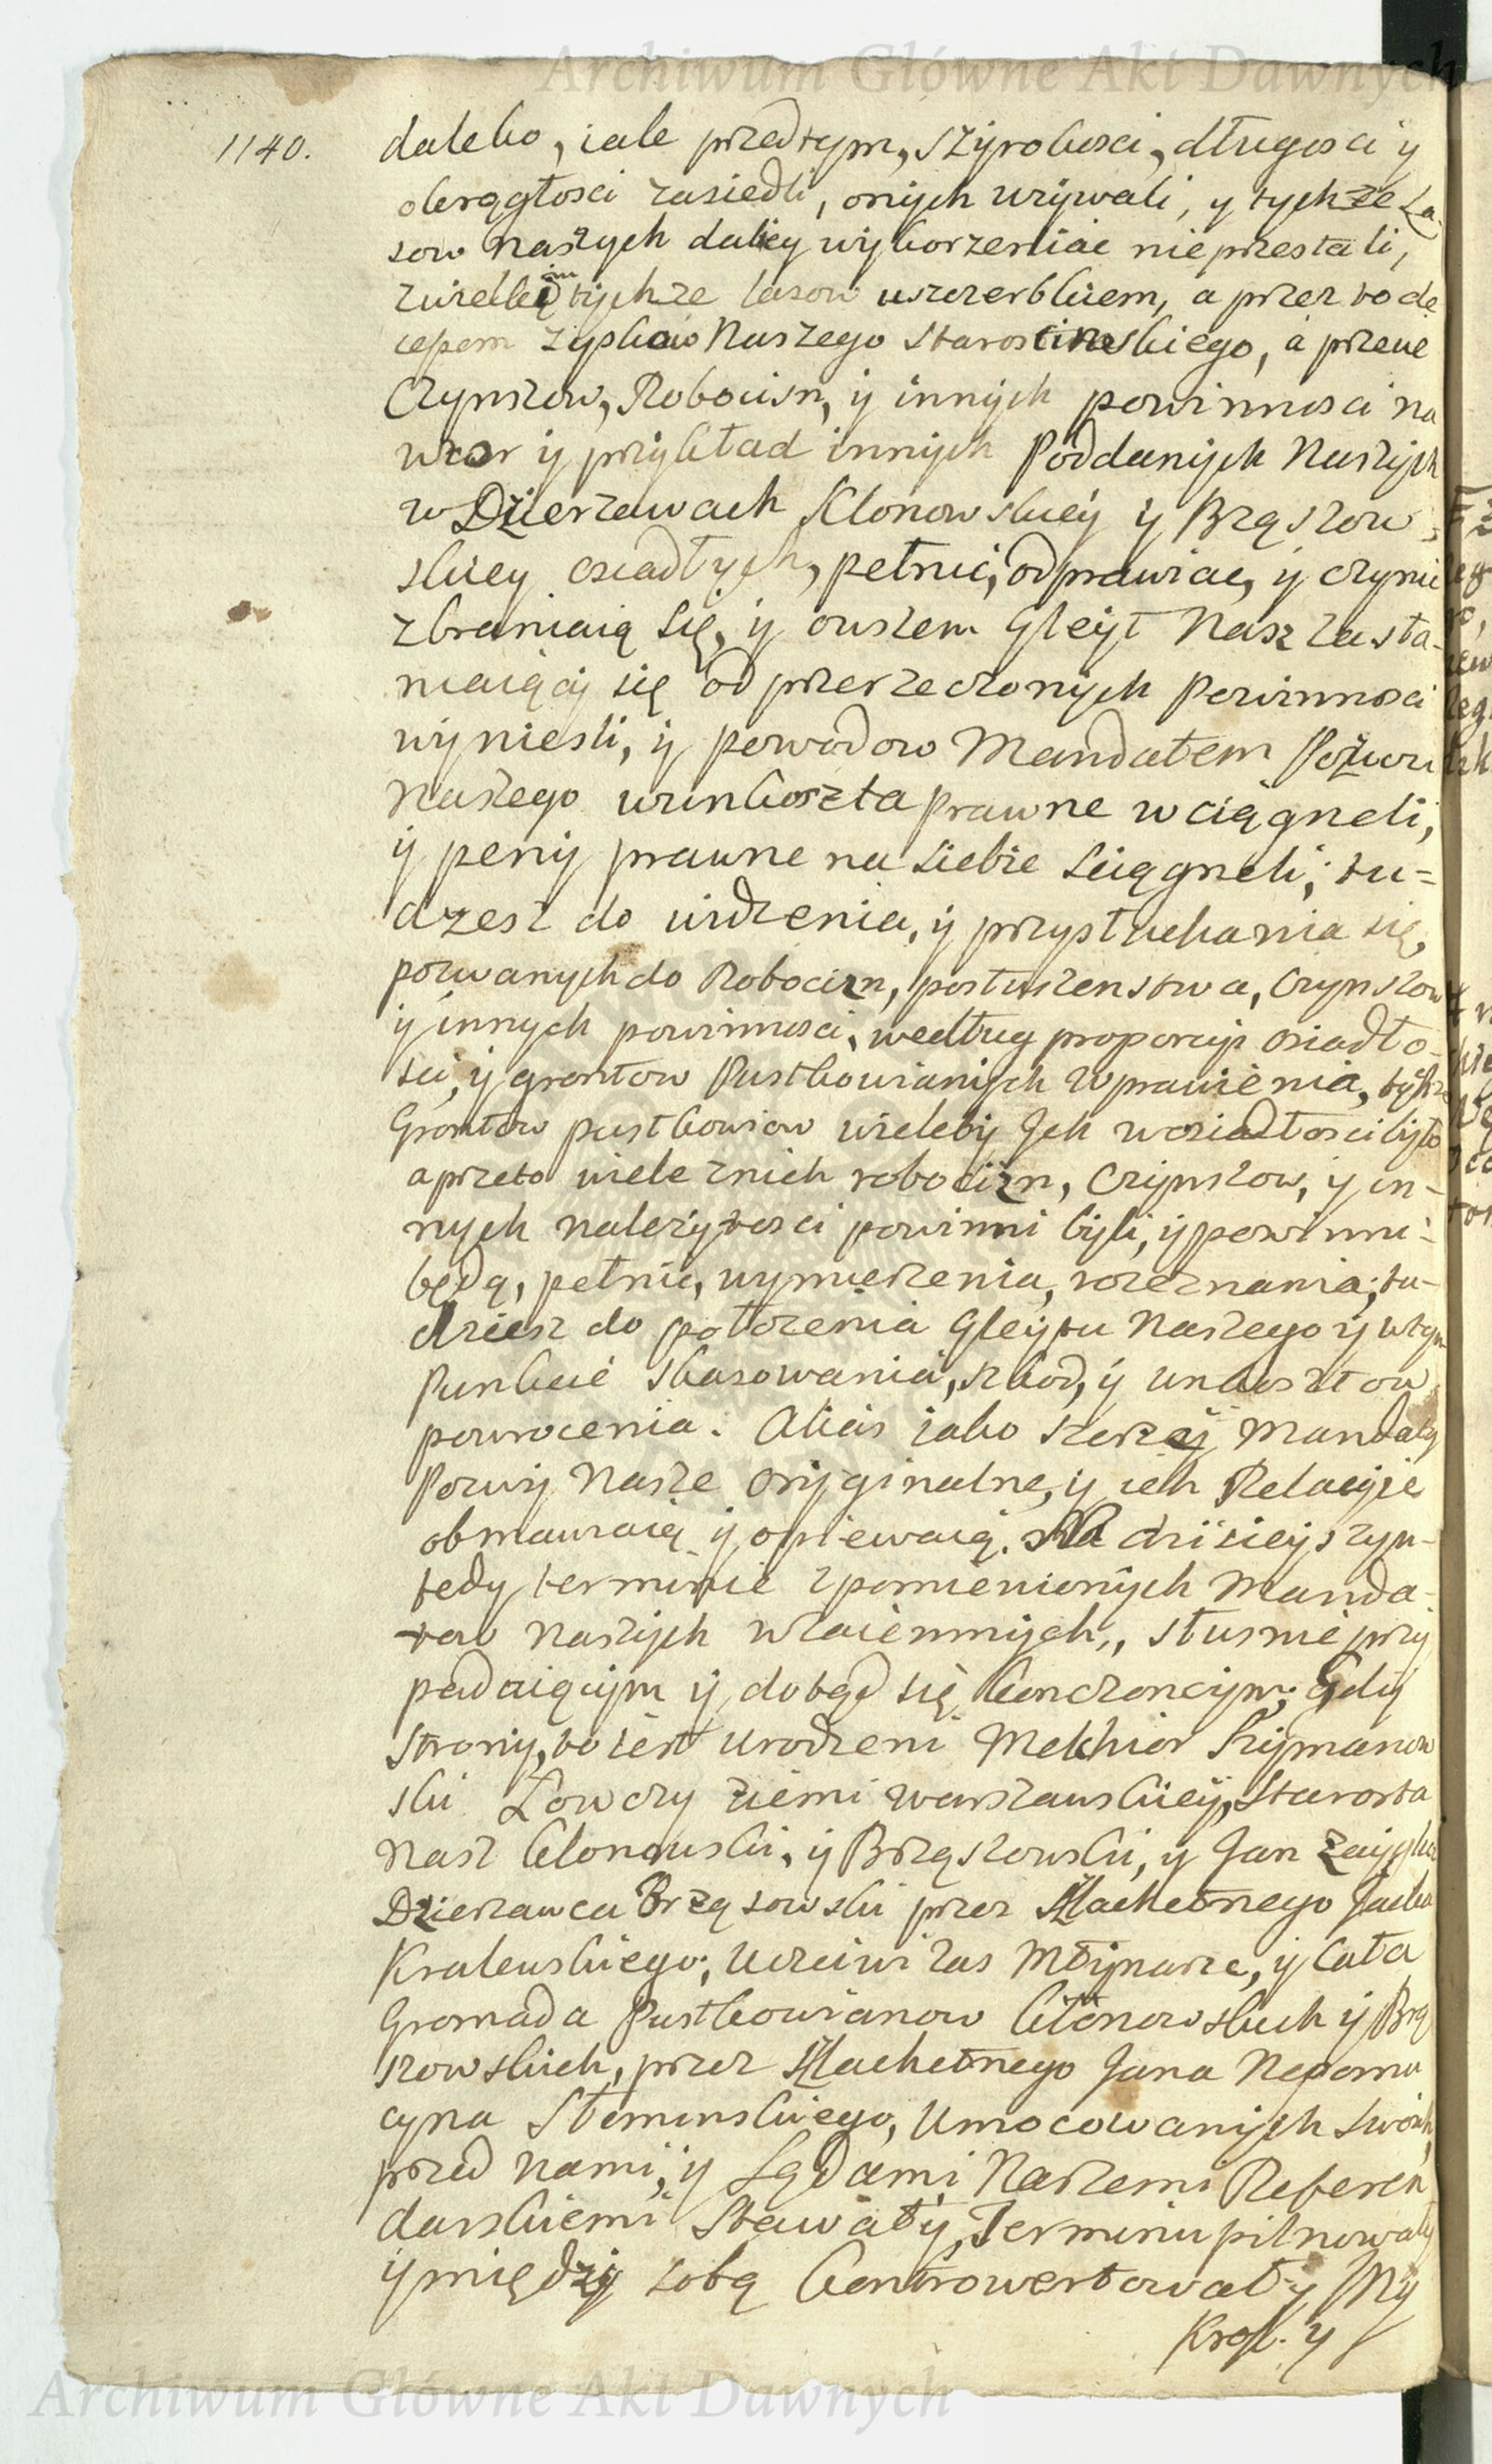 Archiwum Główne Akt Dawnych
1140.
daleko, iako przedtym, szyrokosci, długosci y
okrągłosci zasiedli, onych uzywali, y tychze La-
sow naszych daley wykorzeniac nieprzestali,
zwielkim tychze lasow uszczerbkiem, a przez to de
cepem zyskow Naszego Starostinskiego, a przecie
Czynszow, Robocizn, y innych powinnosci na
wzor y przykład innych Poddanych Naszych
w Dzierzawach Klonowskiey y Brąszow
skiey osiadłych, pełnic, odprawiac, y czynic
zbraniaią się, y owszem Gleyt Nasz zasła-
niaiący się od przerzeczonych Powinnosci
wyniesli, y powodow Mandatem Pozwu
Naszego wunkoszta prawne wciągneli,
y peny prawne na siebie sciągneli; tu-
dziesz do widzenia, y przysłuchania się,
pozwanych do Robocizn, posłuszenstwa, Czynszow
y innych powinnosci, według proporcyi osiadło-
sci, y grontow Pustkowianych wprawienia, tychze
Grontow pustkowiow wieleby Jch w osiadłosci było
a przeto wiele z nich robocizn, Czynszow, y in-
nych nalezytosci powinni byli, y powinni
będą, pełnic, wymierzenia, rozeznania; tu-
dziesz do połozenia Gleytu Naszego y w tym
Punkcie skasowania, szkod, y unkosztow
powrocenia. Alias iako szerzey Mandaty
Pozwy Nasze oryginalne, y ich Relacyie
obmawiaią y opiewaią. Na dzisieyszym
tedy terminie zpomienionych Manda-
tow Naszych wzaiemnych, słusznie przy
padaiącym y dotąd się konczoncym; Gdy
Strony, to iest Urodzeni Melchior Szymanow
ski Łowczy ziemi warszawskiey, Starosta
Nasz klonowski, y Brąszowski, y Jan
Dzierzawca Brząszowski przez Szlachetnego Jacka
Kralewskiego; Uczciwi zas Młynarze, y cała
Gromada Pustkowianow klonowskich y Brą
szowskich, przez Szlachetnego Jana Nepomu
cyna Słominskiego, Umocowanych swoich,
przed Nami, y Sądami Naszemi Referen
darskiemi Stawały, Terminu pilnowały
y między sobą kontrowertowały My
Krol. y
Archiwum Główne Akt Dawnych